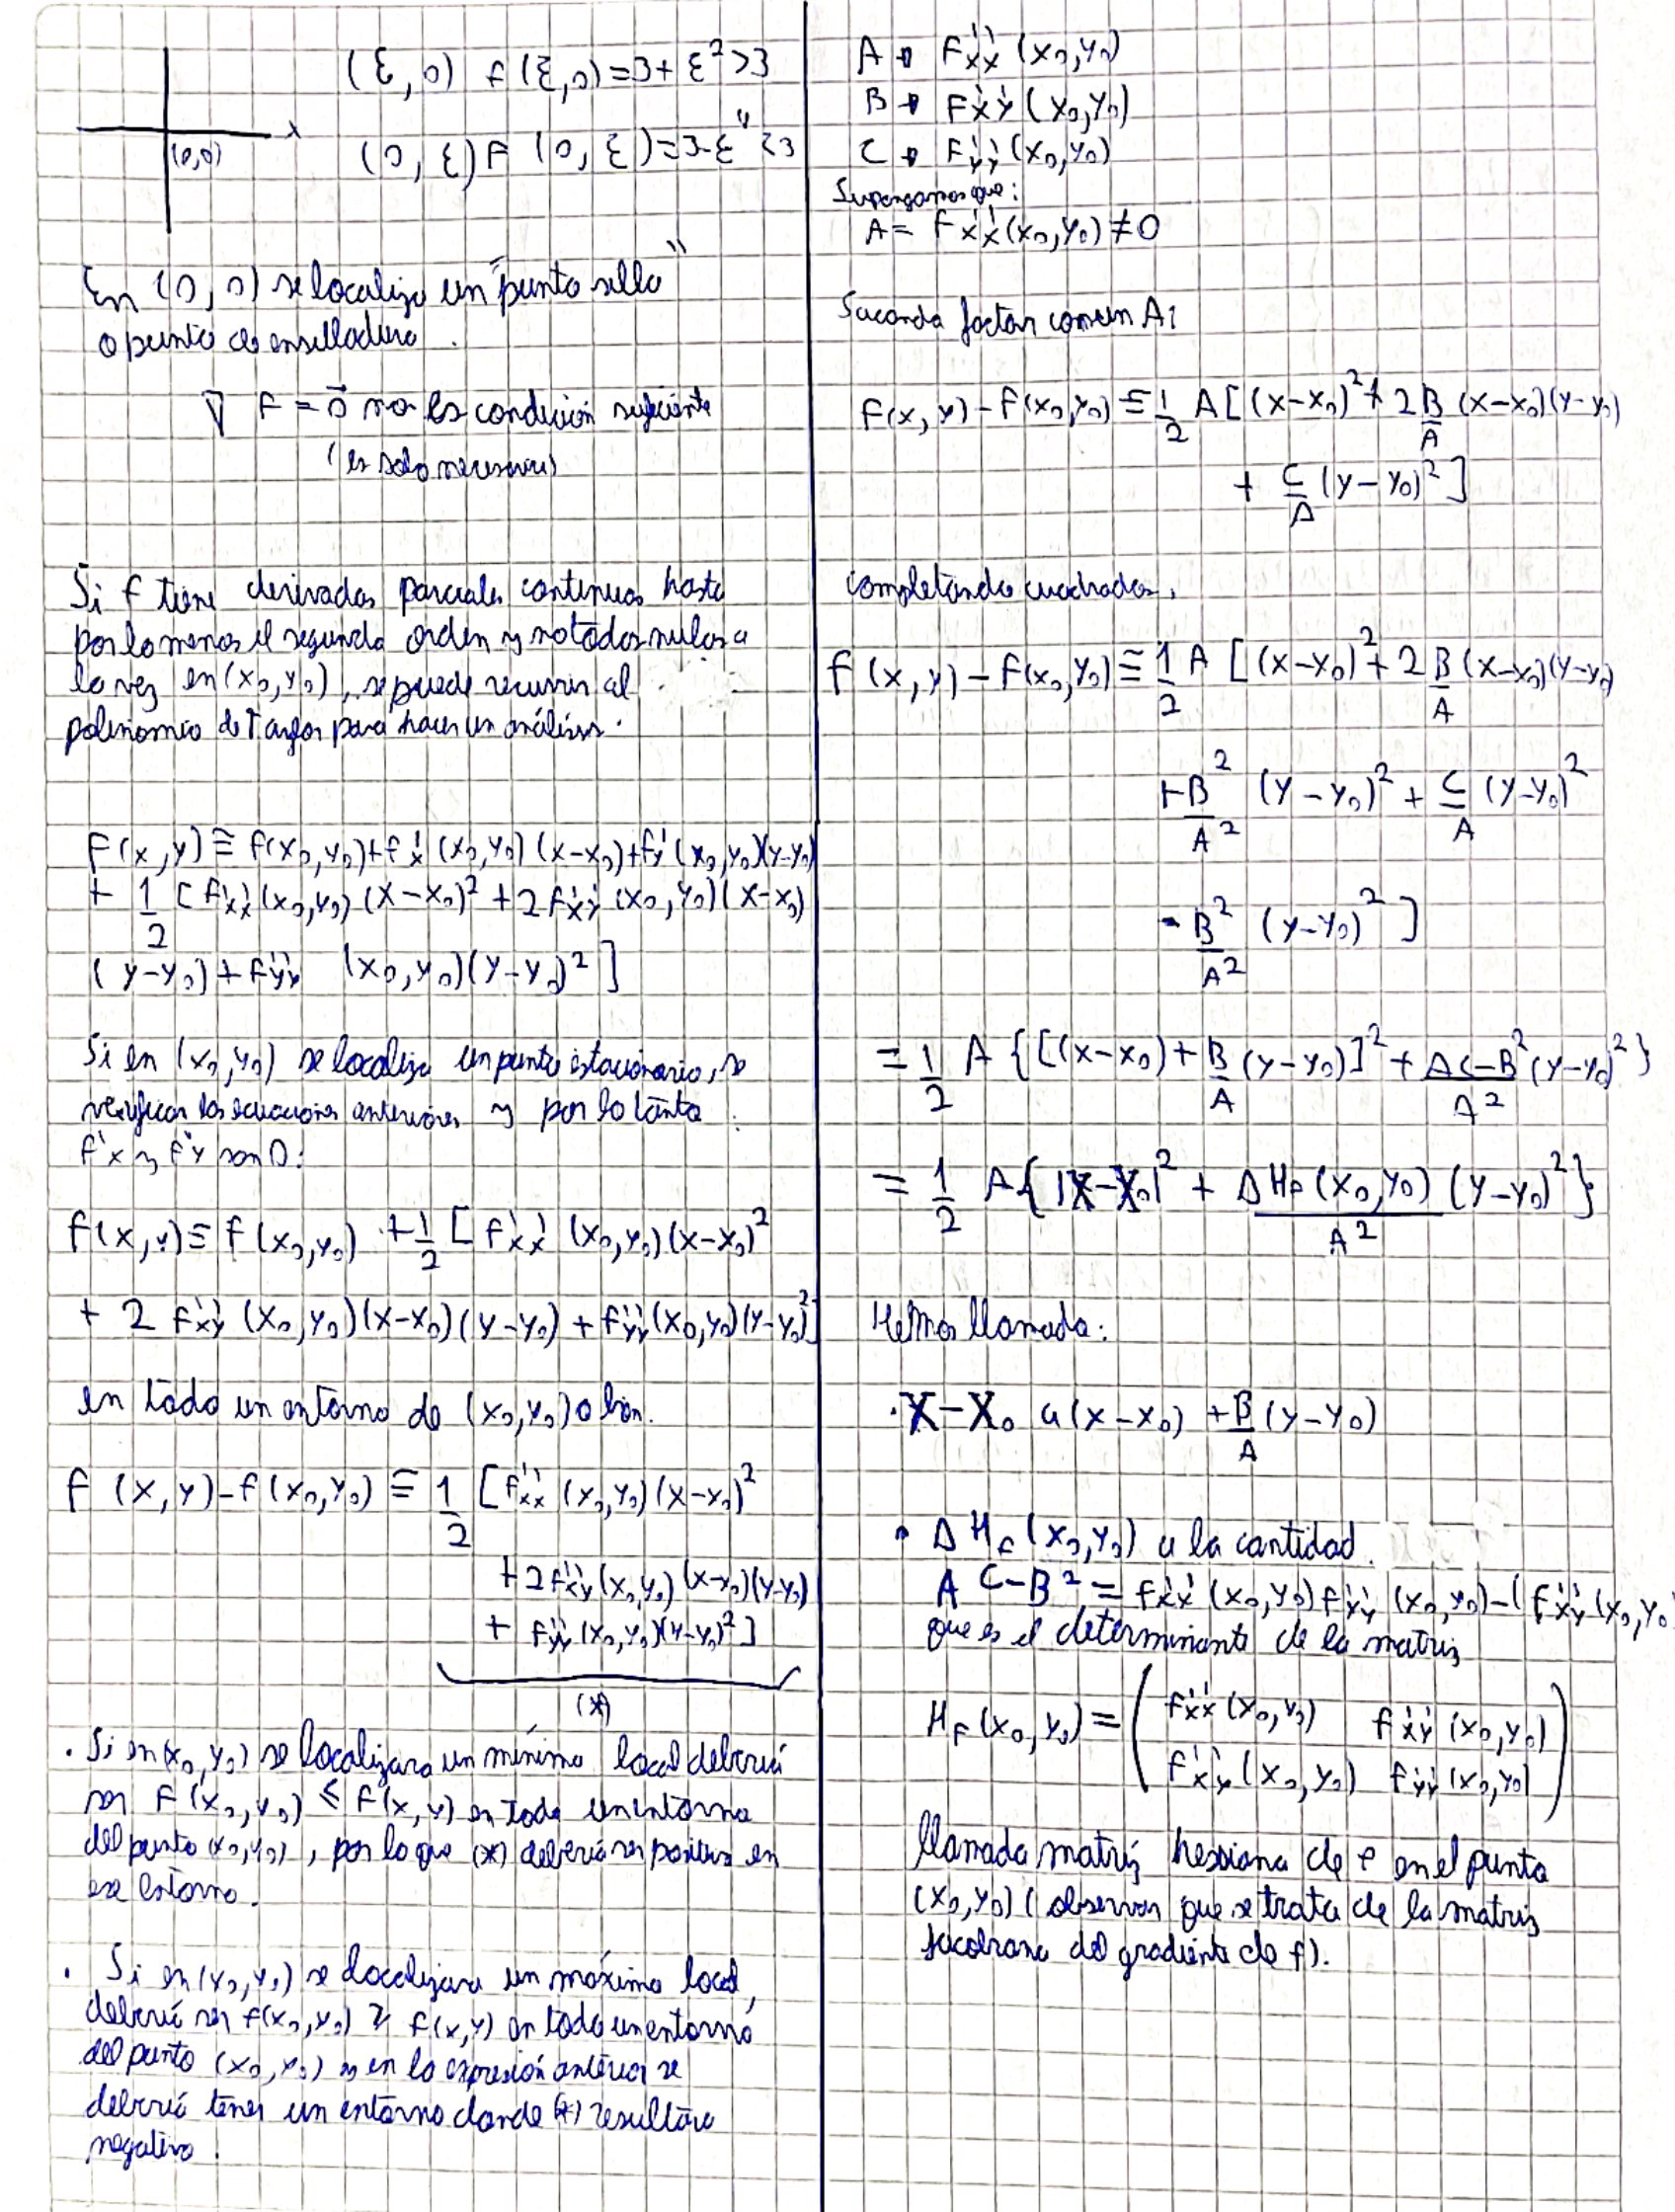 (ξ, 0) f(ξ,0)=3+ξ²>3
x
(0,0)
(0, ξ) F (0, ξ)=3-ξ⁴<3
En (0,0) se localiza un "punto silla"
o punto de ensilladura.
∇ F = 0⃗ no es condición suficiente
(es solo necesaria)
Si f tiene derivadas parciales continuas hasta
por lo menos el segundo orden y no todas nulas a
la vez en (x₀,y₀), se puede recurrir al
polinomio de Taylor para hacer un análisis.
F(x,y) ≅ f(x₀,y₀)+f'x (x₀,y₀) (x-x₀)+f'y (x₀,y₀)(y-y₀)
+ 1/2 [f''xx (x₀,y₀) (x-x₀)² + 2f''xy (x₀,y₀)(x-x₀)
(y-y₀) + f''yy (x₀,y₀)(y-y₀)²]
Si en (x₀,y₀) se localiza un punto estacionario, se
verifican las ecuaciones anteriores y por lo tanto
f'x y f'y son 0:
f(x,y) ≅ f(x₀,y₀) + 1/2 [f''xx (x₀,y₀)(x-x₀)²
+ 2 f''xy (x₀,y₀)(x-x₀)(y-y₀) + f''yy (x₀,y₀)(y-y₀)²]
en todo un entorno de (x₀,y₀) o bien.
F (x,y)-f(x₀,y₀) ≅ 1/2 [f''xx (x₀,y₀)(x-x₀)²
+2f''xy (x₀,y₀)(x-x₀)(y-y₀)
+ f''yy (x₀,y₀)(y-y₀)²]
(*)
. Si en (x₀,y₀) se localizara un mínimo local debería
ser F(x₀,y₀) ≤ F(x,y) en todo un entorno
del punto (x₀,y₀), por lo que (*) debería ser positivo en
ese entorno.
. Si en (x₀,y₀) se localizara un máximo local,
debería ser f(x₀,y₀) ≥ f(x,y) en todo un entorno
del punto (x₀,y₀) y en la expresión anterior se
debería tener un entorno donde (*) resultara
negativo.
A → F''xx (x₀,y₀)
B → F''xy (x₀,y₀)
C → F''yy (x₀,y₀)
Supongamos que:
A = F''xx (x₀,y₀) ≠ 0
Sacando factor común A:
F(x,y)-f(x₀,y₀) ≅ 1/2 A [(x-x₀)² + 2 B/A (x-x₀)(y-y₀)
+ C/A (y-y₀)²]
completando cuadrados,
f(x,y)-f(x₀,y₀) ≅ 1/2 A [(x-x₀)² + 2 B/A (x-x₀)(y-y₀)
+ B²/A² (y-y₀)² + C/A (y-y₀)²
- B²/A² (y-y₀)²]
= 1/2 A {[(x-x₀) + B/A (y-y₀)]² + AC-B²/A² (y-y₀)²}
= 1/2 A {|X-X₀|² + ΔHF (x₀,y₀)/A² (y-y₀)²}
Hemos llamado:
. X-X₀ a (x-x₀) + B/A (y-y₀)
. ΔHf (x₀,y₀) a la cantidad
AC-B² = f''xx (x₀,y₀) f''yy (x₀,y₀) - (f''xy (x₀,y₀
que es el determinante de la matriz
HF (x₀,y₀) = ( f''xx (x₀,y₀) f''xy (x₀,y₀)
f''xy (x₀,y₀) f''yy (x₀,y₀) )
llamada matriz hessiana de f en el punto
(x₀,y₀) (observar que se trata de la matriz
jacobiana del gradiente de f).